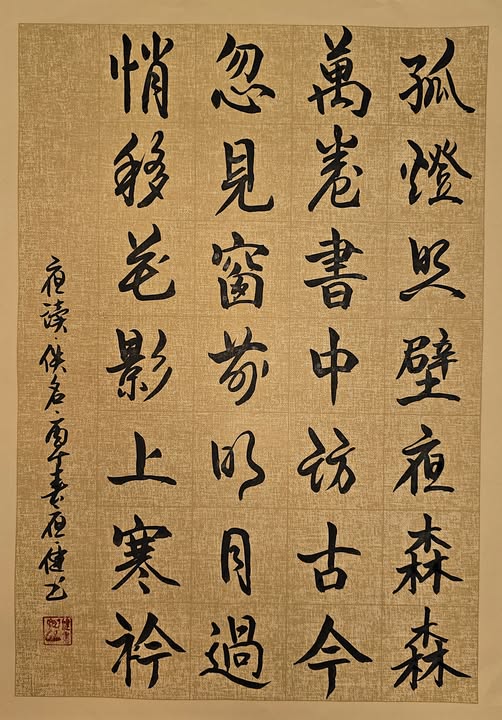 孤燈照壁夜森森
萬卷書中訪古今
忽見窗前明月過
悄移花影上寒衿
夜读·佚名·丙午春夜健书